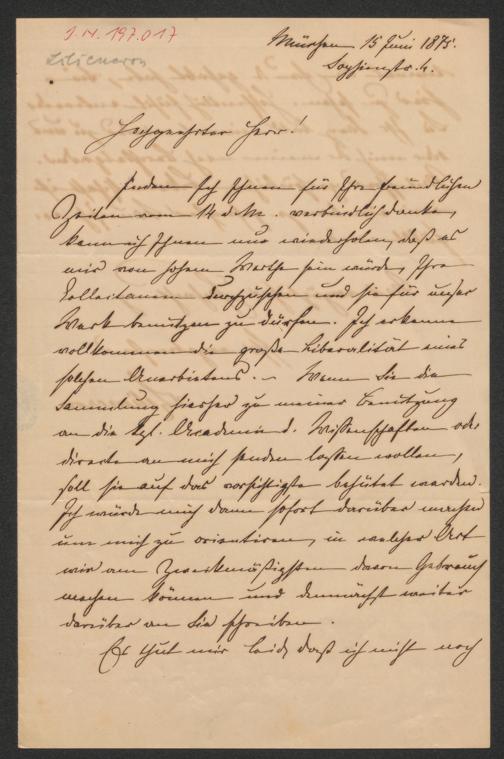 J. N. 197.017
Liliencron
München 15 Juni 1875.
Sophienstr. 4.
Hochgeehrter Herr!
Indem ich Ihnen für Ihre freundlichen
Zeilen vom 14 d. M. verbindlich danke,
kann ich Ihnen nur wiederholen, daß es
mir von hohem Werthe sein würde, Ihre
Collectaneen durchzusehen und sie für unser
Werk benutzen zu dürfen. Ich erkenne
vollkommen die große Liberalität eines
solchen Anerbietens. – Wenn Sie die
Sammlung hierher zu meiner Benutzung
an die kgl. Academie d. Wissenschaften oder
directe an mich senden lassen wollen,
soll sie auf das vorsichtigste behütet werden.
Ich würde mich dann sofort darüber machen
um mich zu orientiren, in welcher Art
wir am Zweckmäßigsten davon Gebrauch
machen können und demnächst weiter
darüber an Sie schreiben.
Es thut mir leid, daß ich nicht noch